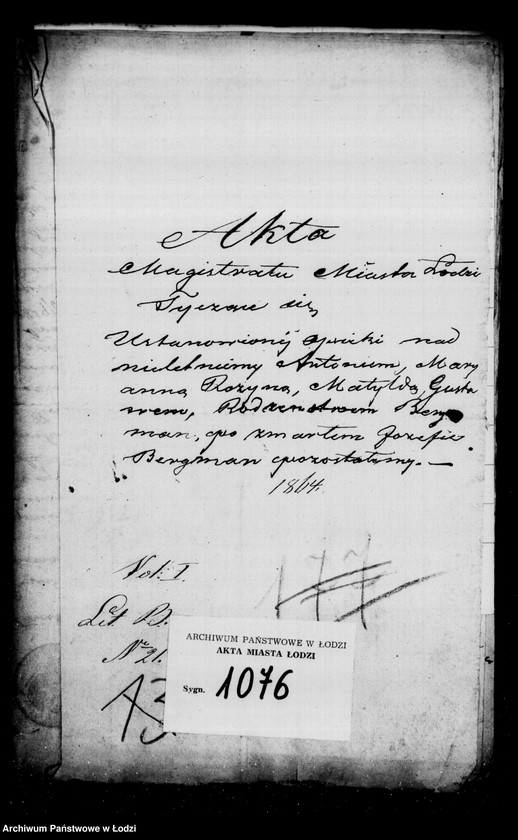 Akta
Magistratu Miasta Łodzi
Tyczące się
Ustanowionéj Opieki nad
nieletniemy Antonim, Mary
anną Rozyną, Matyldą, Gusta
wem, Rodzenstwem Berg
man, po zmartem Jozefie
Bergman pozostałemy. —
1864.
177
Vol: I.
Lit. B.
No 21.
ARCHIWUM PAŃSTWOWE W ŁODZI
AKTA MIASTA ŁODZI
Sygn. 1076
Archiwum Państwowe w Łodzi